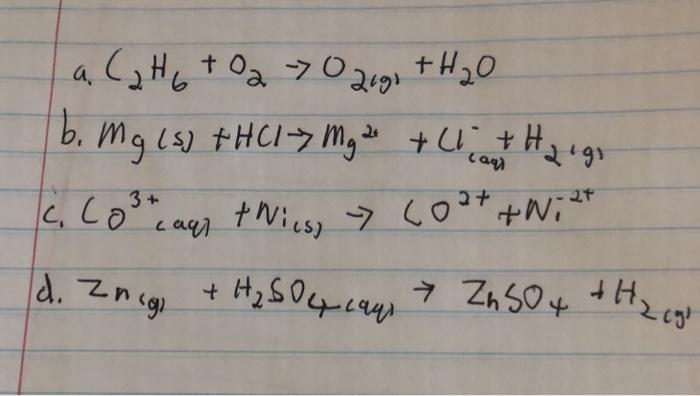 a. C₂H₆ + O₂ → O₂(g) + H₂O
b. Mg (s) + HCl → Mg²⁺ + Cl⁻(aq) + H₂(g)
c. Co³⁺(aq) + Ni(s) → Co²⁺ + Ni²⁺
d. Zn(g) + H₂SO₄(aq) → ZnSO₄ + H₂(g)